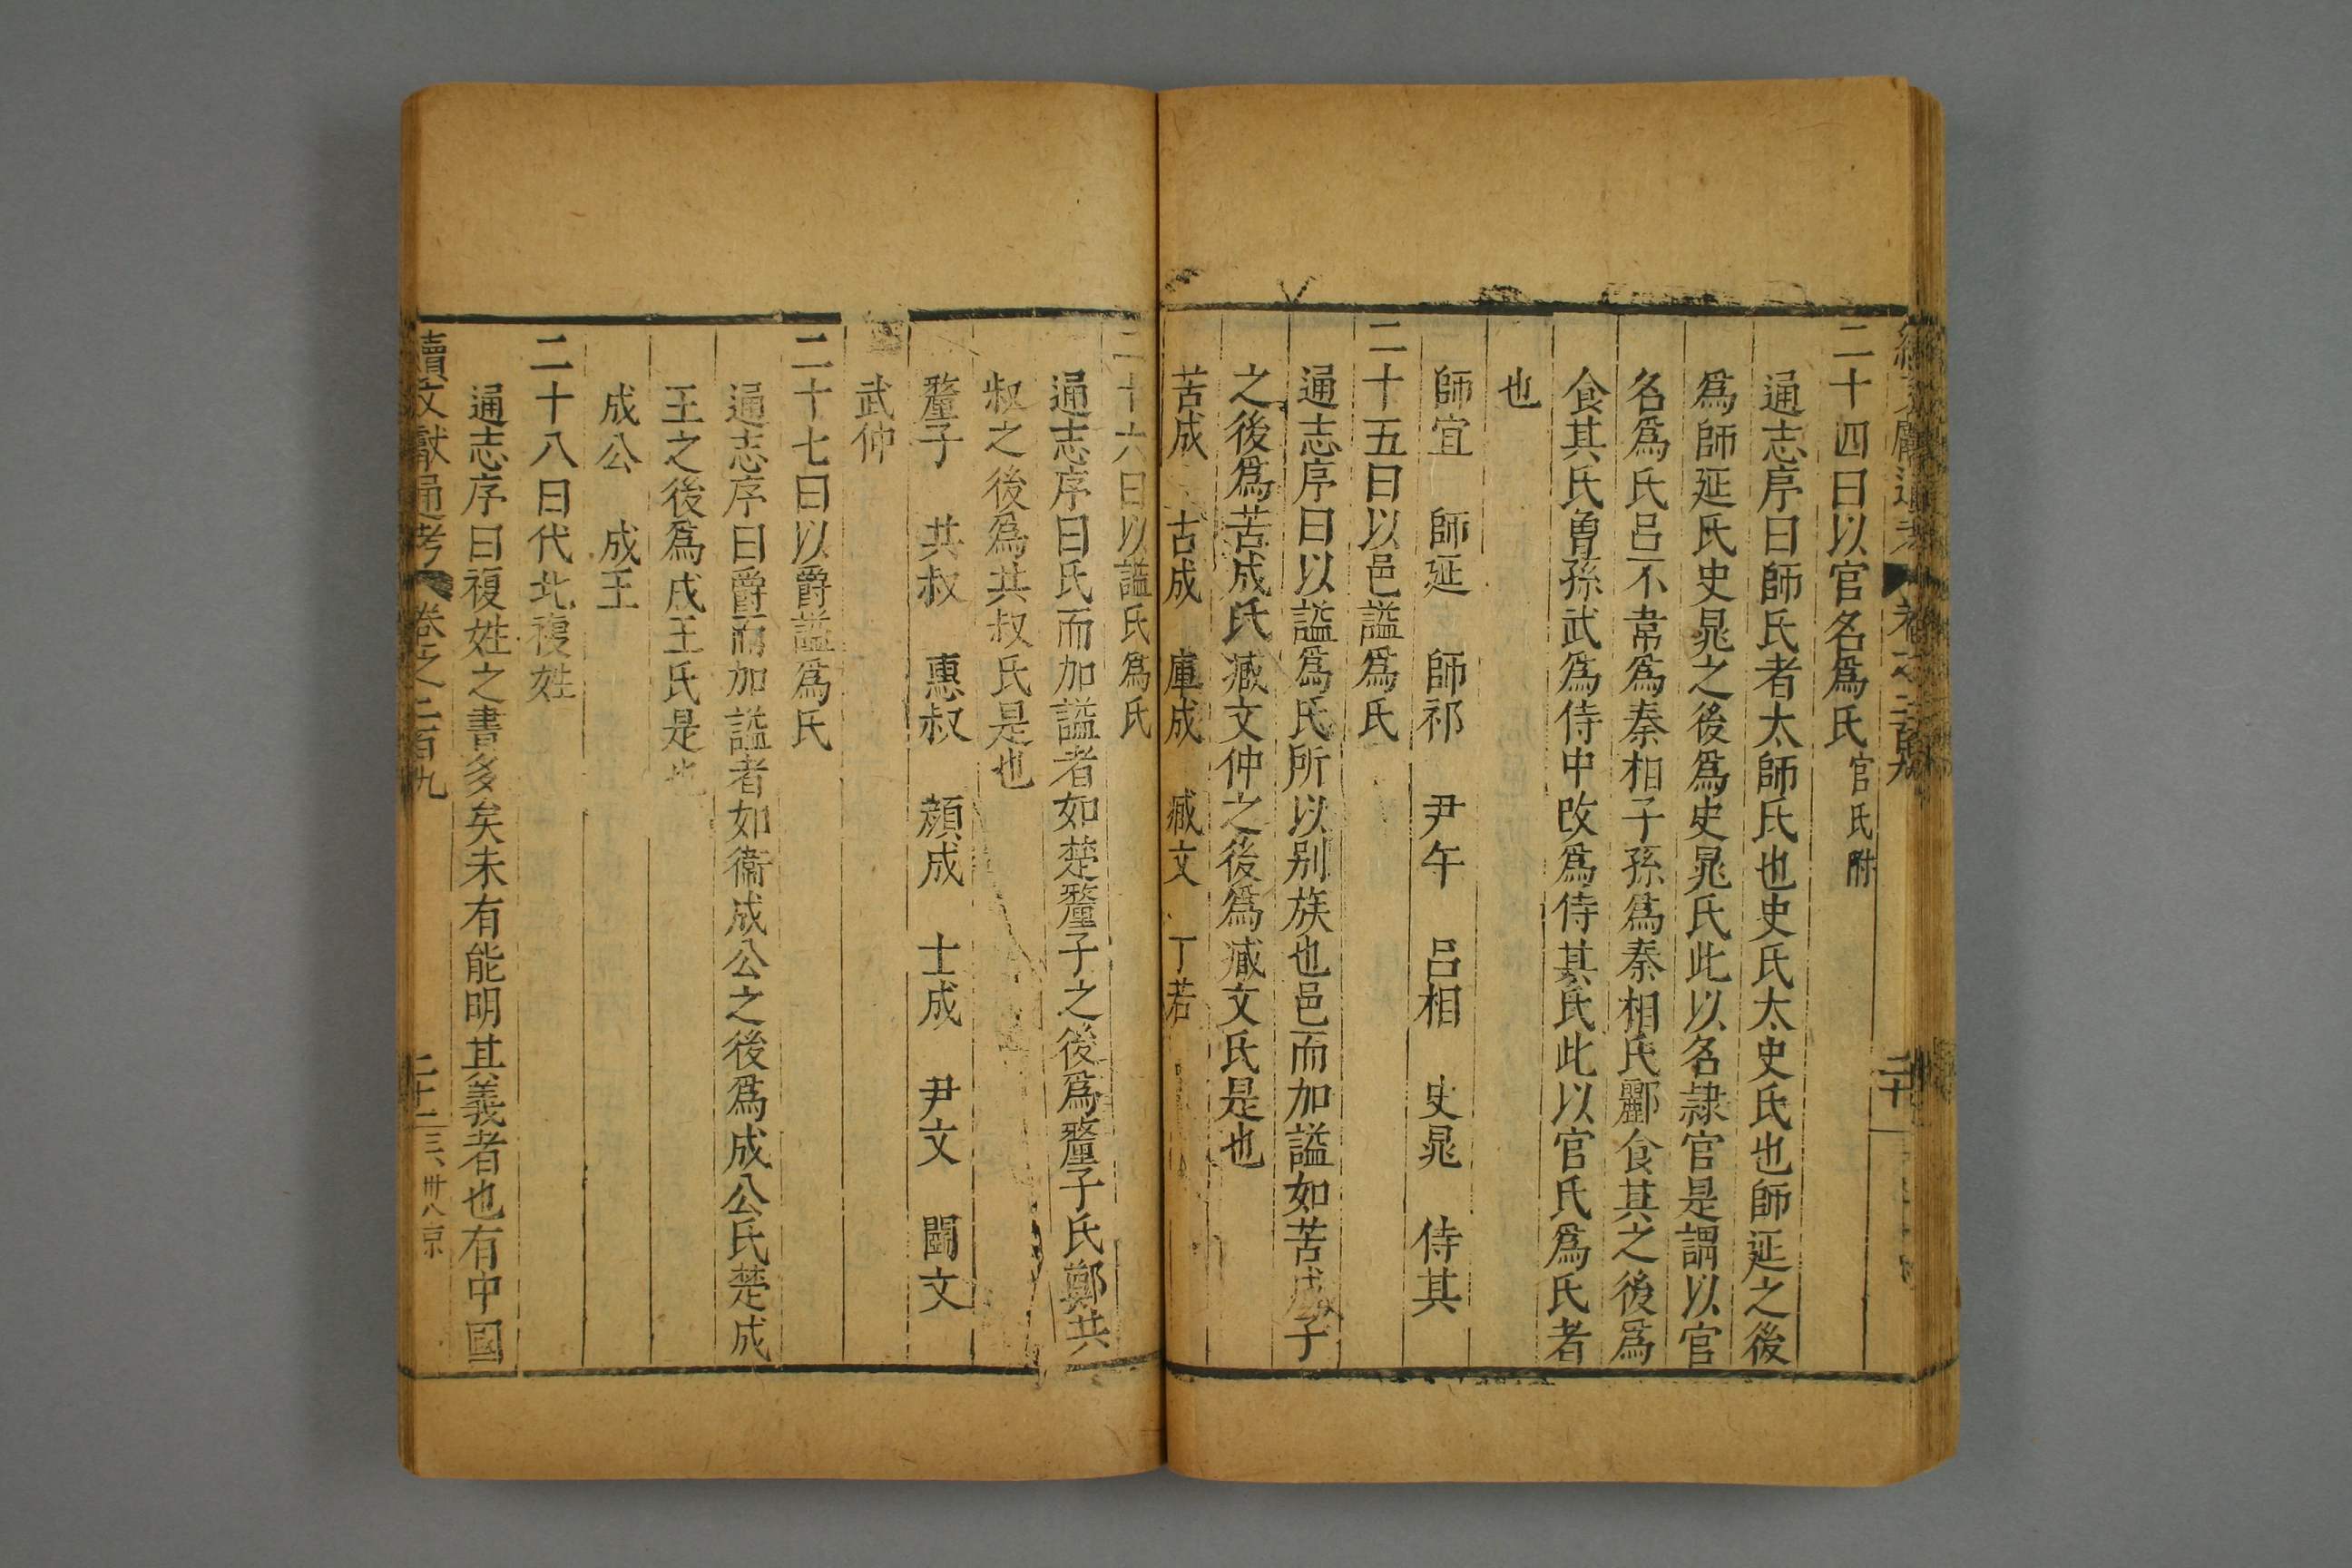 二十四曰以官名爲氏 官氏附
通志序曰師氏者太師氏也史氏太史氏也師延之後
爲師延氏史晁之後爲史晁氏此以名隷官是謂以官
名爲氏呂不韋爲秦相子孫爲秦相氏酈食其之後爲
食其氏曾孫武爲侍中改爲侍其氏此以官氏爲氏者
也
師宜 師延 師祁 尹午 呂相 史晁 侍其
二十五曰以邑謚爲氏
通志序曰以謚爲氏所以别族也邑而加謚如苦成子
之後爲苦成氏臧文仲之後爲臧文氏是也
苦成 古成 庫成 臧文 丁若
二十六曰以謚氏爲氏
通志序曰氏而加謚者如楚釐子之後爲釐子氏鄭共
叔之後爲共叔氏是也
釐子 共叔 惠叔 顔成 士成 尹文 鬭文
武仲
二十七曰以爵謚爲氏
通志序曰爵而加謚者如衞成公之後爲成公氏楚成
王之後爲成王氏是也
成公 成王
二十八曰代北複姓
通志序曰複姓之書多矣未有能明其義者也有中國
續文獻通考 卷之二百九 二十二 三卅八 京